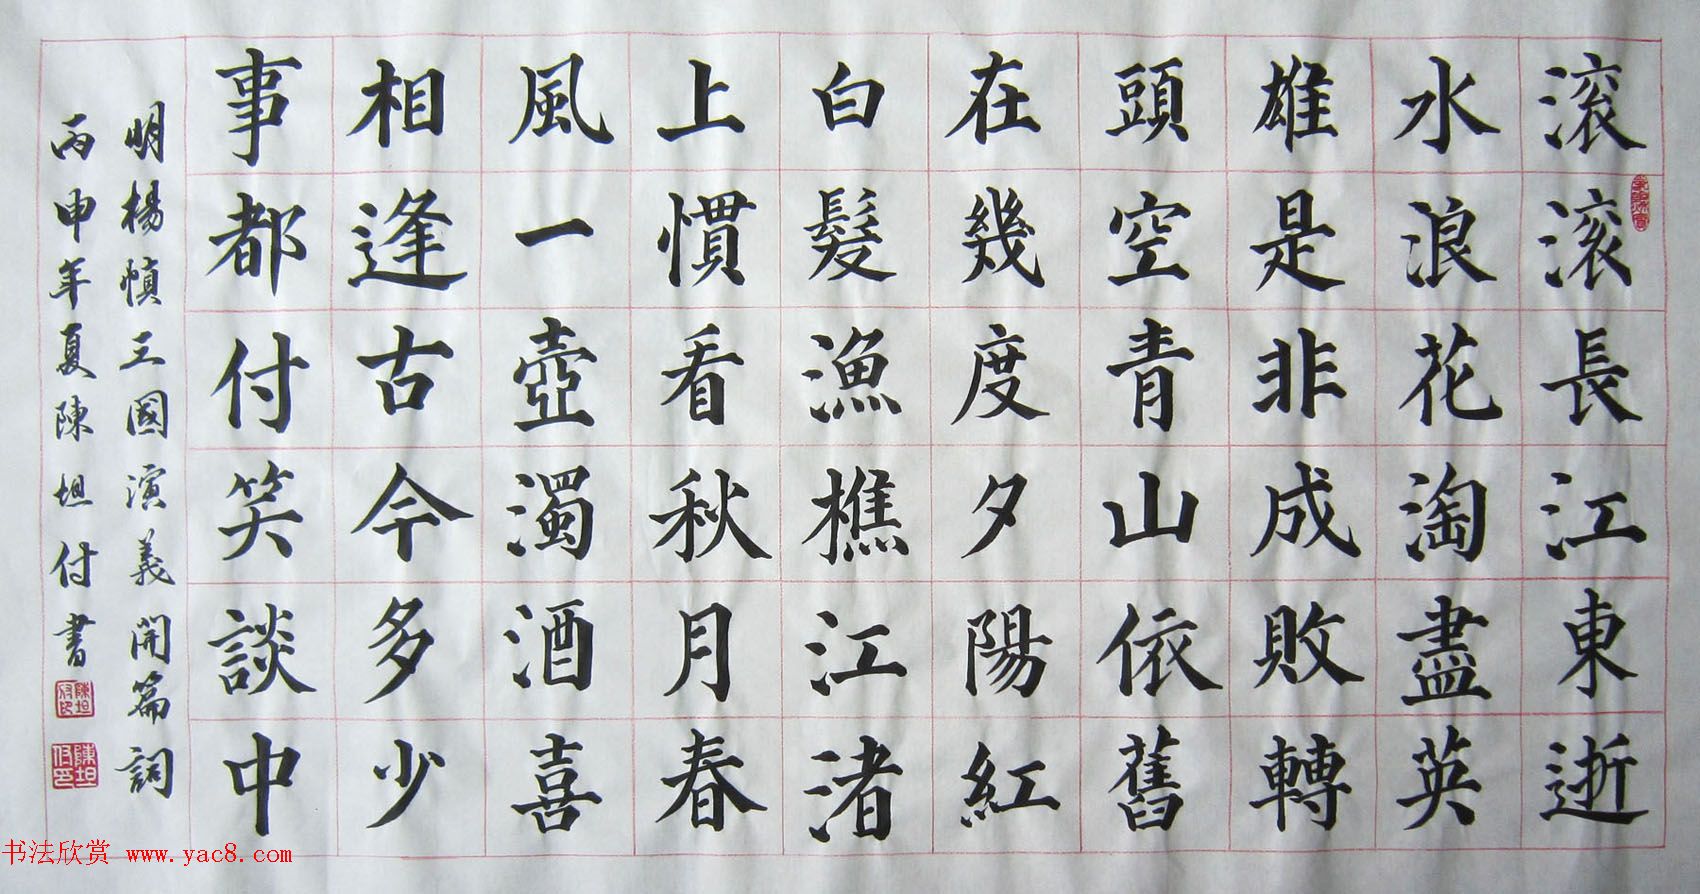 滚滚長江東逝
水浪花淘盡英
雄是非成敗轉
頭空青山依舊
在幾度夕陽紅
白髮漁樵江渚
上慣看秋月春
風一壺濁酒喜
相逢古今多少
事都付笑談中
明楊慎三國演義開篇詞
丙申年夏陳坦付書
陳坦付印
陳坦付印
书法欣赏 www.yac8.com